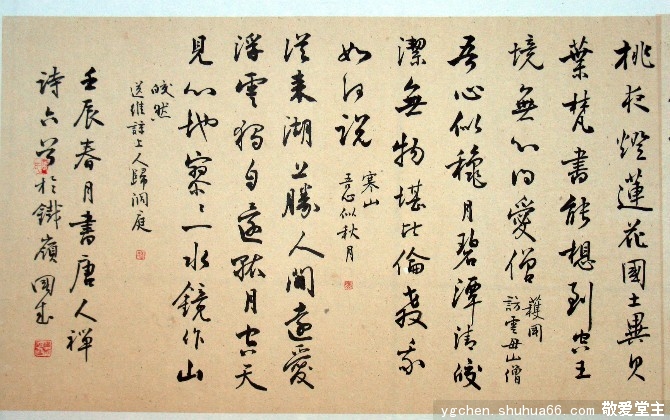 挑夜燈蓮花國土異貝
葉梵書能想到空王
境無心問愛憎
護國
訪雲母山僧
吾心似穐月碧潭清皎
潔無物堪比倫教我
如何說
寒山
吾心似秋月
從來湖上勝人間遠愛
浮雲獨自還孤月空天
見心地寥〻一水鏡山
皎然
送維諒上人歸洞庭
壬辰春月書唐人禪
詩六首於鐵嶺國
ygchen.shuhua66.com 敬爱堂主